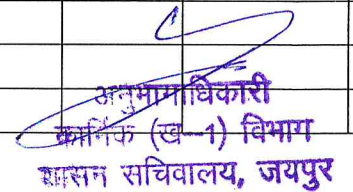 अनुभागाधिकारी
कार्मिक (ख–1) विभाग
शासन सचिवालय, जयपुर